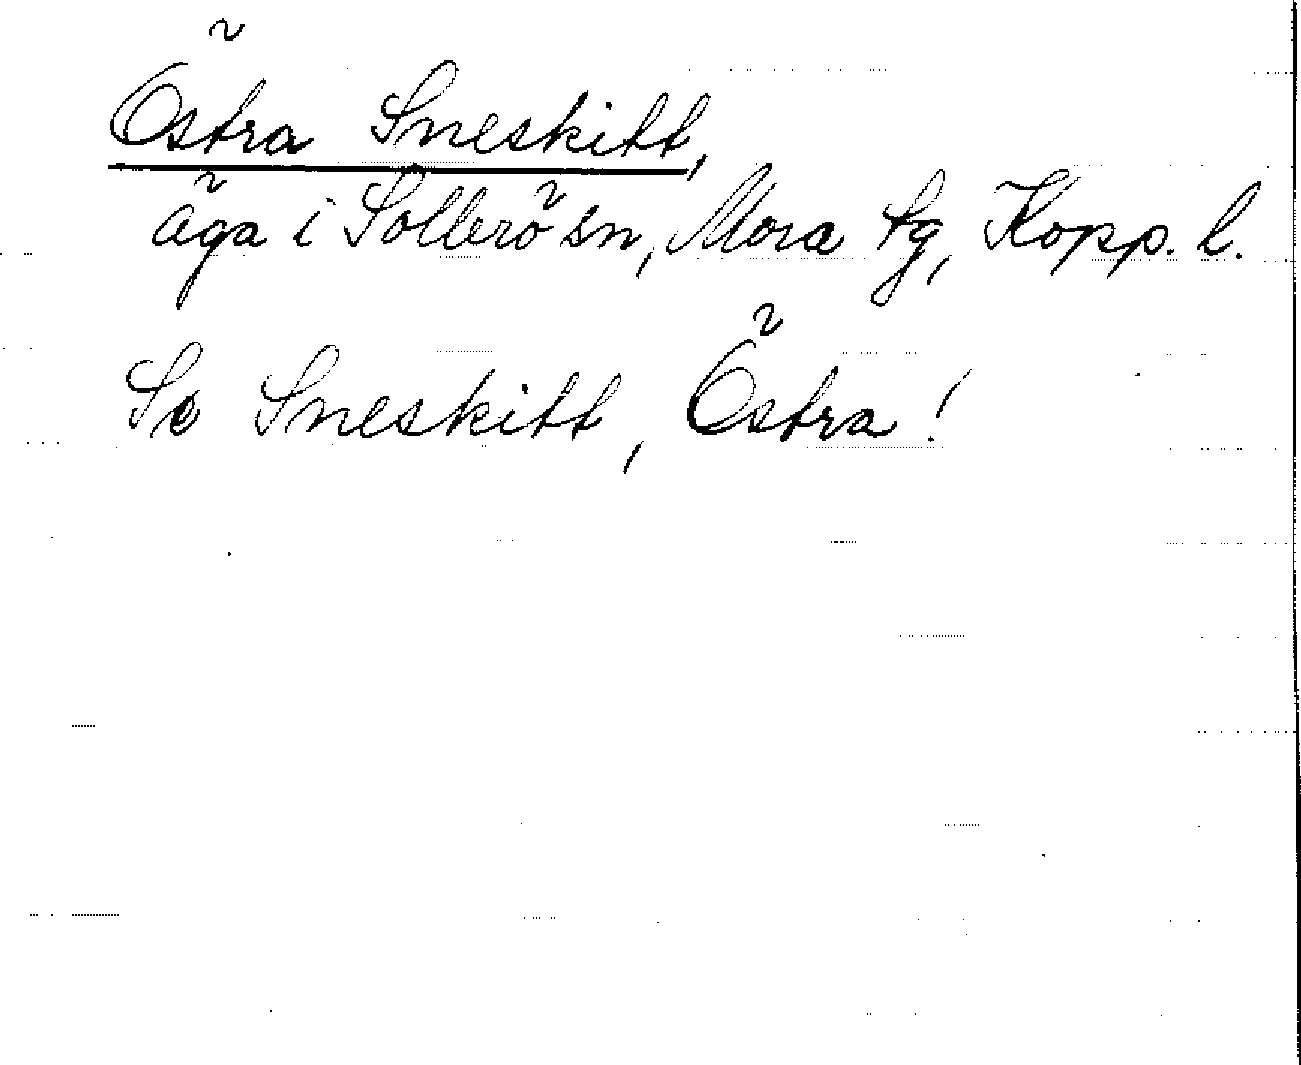 Östra Sneskitt,
äga i Sollerö sn, Mora tg, Kopp. l.
Se Sneskitt, Östra!